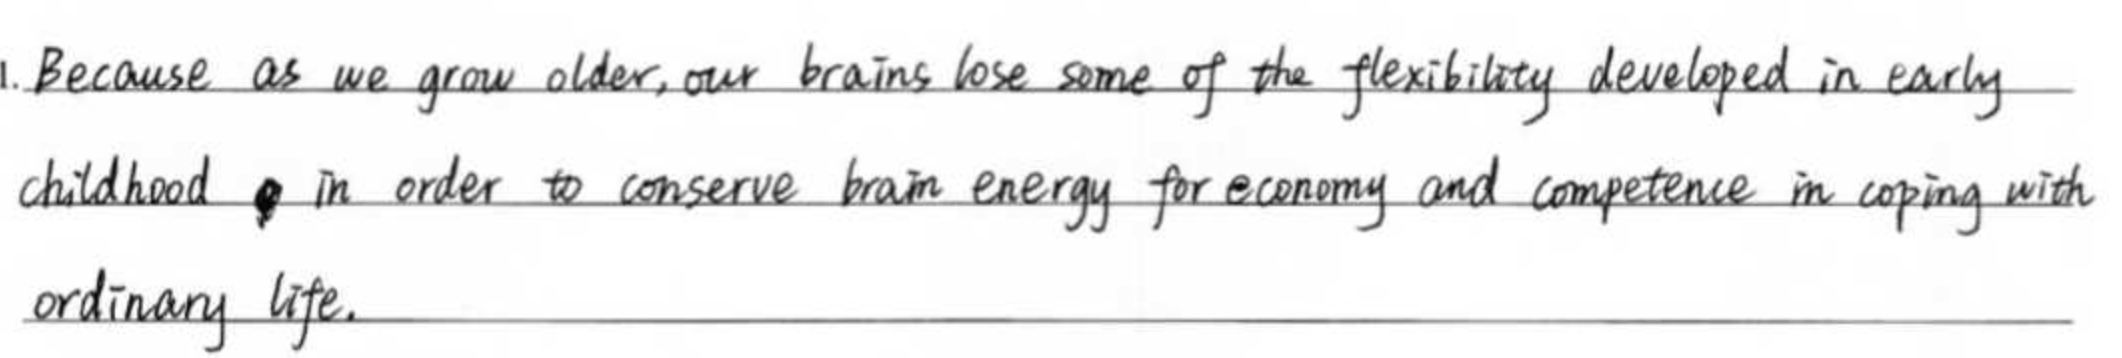 1. Because as we grow older, our brains lose some of the flexibility developed in early
childhood in order to conserve brain energy for economy and competence in coping with
ordinary life.